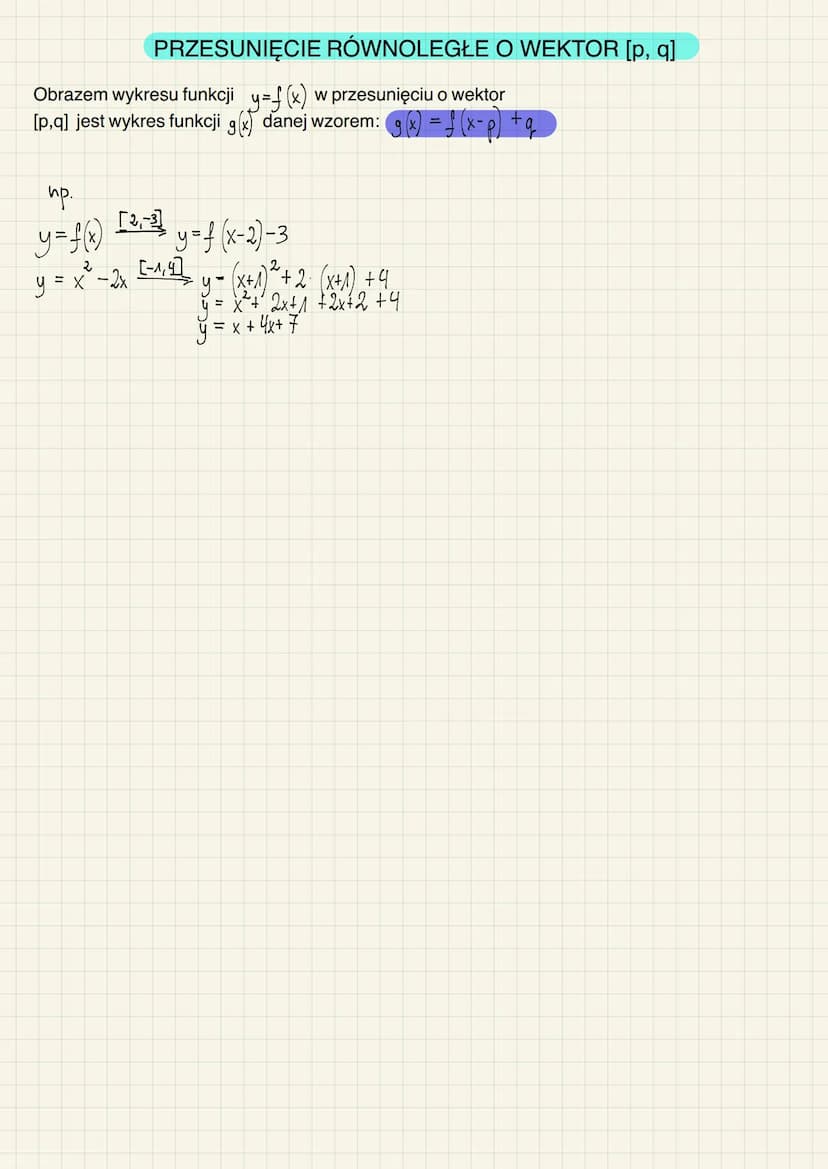 PRZESUNIĘCIE RÓWNOLEGŁE O WEKTOR [p, q]
Obrazem wykresu funkcji y=f(x) w przesunięciu o wektor
[p,q] jest wykres funkcji g(x) danej wzorem: g(x) = f(x-p) +q
np.
y=f(x) [2,-3] → y=f(x-2)-3
y = x² -2x [-1,4] → y = (x+1)² + 2· (x+1) +4
y = x² + 2x+1 +2x+2 +4
y = x + 4x+ 7